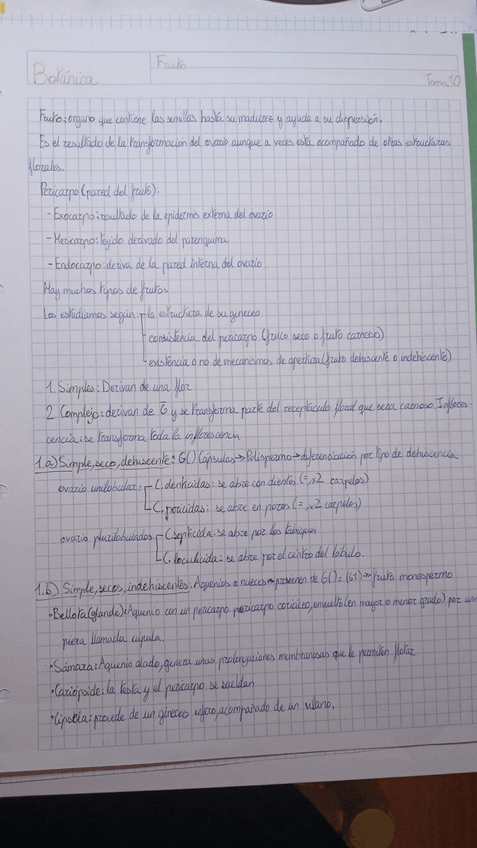 Fruto
Botánica
Tema 10
Fruto: órgano que contiene las semillas hasta su madurez y ayuda a su dispersión.
Es el resultado de la transformación del ovario aunque a veces está acompañado de otras estructuras
florales.
Pericarpo (pared del fruto):
- Exocarpo: resultado de la epidermis externa del ovario
- Mesocarpo: tejido derivado del parenquima
- Endocarpo: deriva de la pared interna del ovario
Hay muchos tipos de frutos
Los estudiamos según: la estructura de su gineceo
consistencia del pericarpo (fruto seco o fruto carnoso)
existencia o no de mecanismos de apertura (fruto dehiscente o indehiscente)
1. Simples: Derivan de una flor
2. Complejo: derivan de G y se transforma parte del receptáculo floral que será carnoso Inflores-
cencia: se transforma toda la inflorescencia
1.a) Simple, seco, dehiscente: G() Cápsulas → Polispermo → diferenciación por tipo de dehiscencia
ovario unilobular: C. denticidas: se abre con dientes (=, x2 carpelos)
C. poricidas: se abre en poros (=, x2 carpelos)
ovario plurilobulados C. septicida: se abre por los tabiques
C. loculicida: se abre por el centro del lóbulo.
1.b) Simple, secos, indehiscentes: Aquenios o nueces → provienen de G() = (G1) → fruto monospermo
- Bellota (glande): Aquenio con un pericarpo coriáceo, envuelto (en mayor o menor grado) por una
pieza llamada cúpula.
• Sámara: Aquenio alado, genera unas prolongaciones membranosas que le permiten flotar
• Cariópside: la testa y el pericarpo se sueldan
• Cipsela: procede de un gineceo ínfero, acompañado de un vilano.